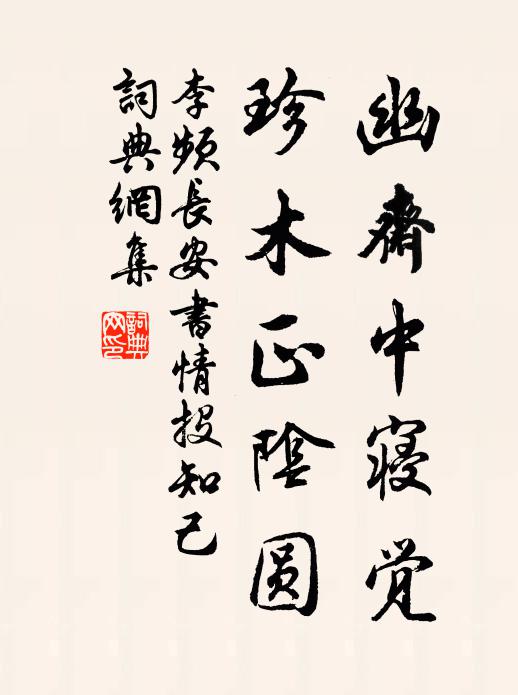 幽齋中寝觉
珍木正陰圆
李频長安書情投知己
詞典網集
詞典网印